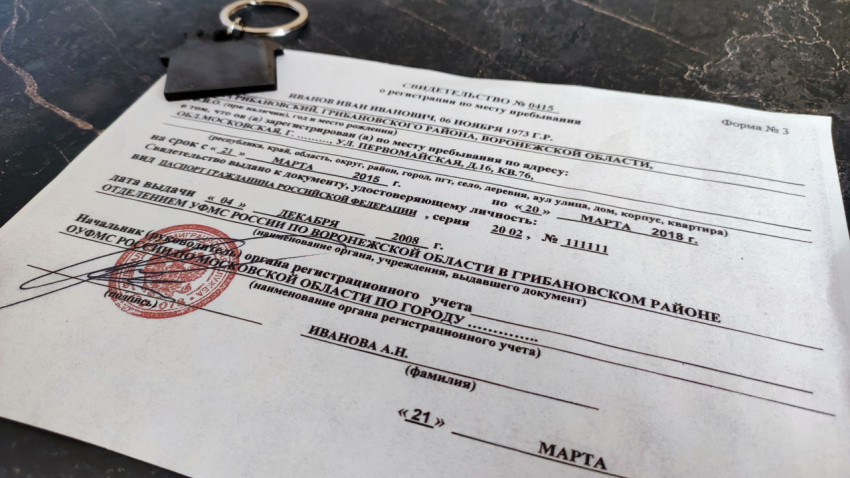 СВИДЕТЕЛЬСТВО № 0415
о регистрации по месту пребывания
Форма № 3
ИВАНОВ ИВАН ИВАНОВИЧ, 06 НОЯБРЯ 1973 Г.Р.
ГРИБАНОВСКИЙ, ГРИБАНОВСКОГО РАЙОНА, ВОРОНЕЖСКОЙ ОБЛАСТИ,
год и место рождения)
в том, что он (а) зарегистрирован (а) по месту пребывания по адресу:
ОБЛ МОСКОВСКАЯ, Г ........., УЛ. ПЕРВОМАЙСКАЯ, Д.16, КВ.76,
(республика, край, область, округ, район, город, пгт, село, деревня, аул улица, дом, корпус, квартира)
на срок с « 21 » МАРТА 2015 г. по «20 » МАРТА 2018 г.
Свидетельство выдано к документу, удостоверяющему личность:
вид ПАСПОРТ ГРАЖДАНИНА РОССИЙСКОЙ ФЕДЕРАЦИИ , серия 20 02 , № 111111
дата выдачи « 04 » ДЕКАБРЯ 2008 г.
ОТДЕЛЕНИЕМ УФМС РОССИИ ПО ВОРОНЕЖСКОЙ ОБЛАСТИ В ГРИБАНОВСКОМ РАЙОНЕ
(наименование органа, учреждения, выдавшего документ)
Начальник (руководитель) органа регистрационного учета
ОУФМС РОССИИ ПО МОСКОВСКОЙ ОБЛАСТИ ПО ГОРОДУ ..............
(наименование органа регистрационного учета)
(подпись)
ИВАНОВА А.Н.
(фамилия)
« 21 » МАРТА